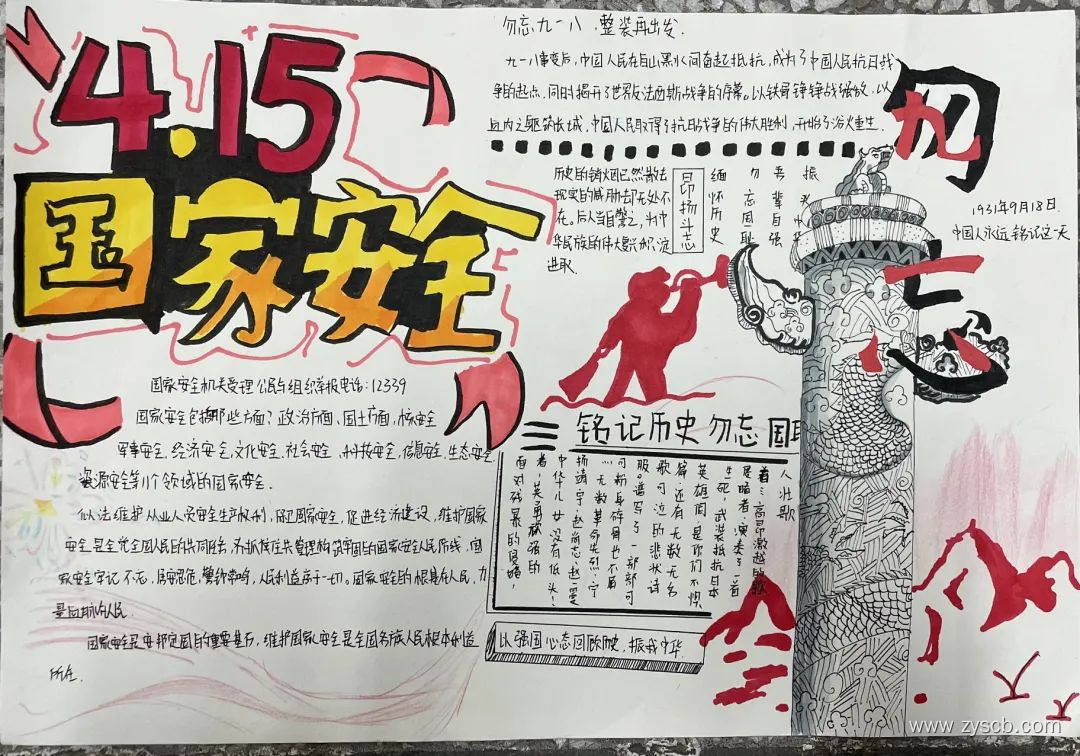 4.15
国家安全
国家安全机关受理公民与组织举报电话:12339
国家安全包括哪些方面?政治方面,国土方面,核安全
军事安全,经济安全,文化安全,社会安全,科技安全,信息安全,生态安全
资源安全等11个领域的国家安全.
依法维护从业人员安全生产权利,保卫国家安全,促进经济建设,维护国家
安全是全党全国人民的共同
的国家安全人民防线,国
家安全牢记不忘,居安思危,警钟常鸣,人民利益高于一切。国家安全的根基在人民,力
量
人民.
国家安全是安邦定国的重要基石,维护国家安全是全国各族人民根本利益
所在.
勿忘九一八,整装再出发.
九一八事变后,中国人民在白山黑水间奋起抵抗,成为了中国人民抗日战
争的起点,同时揭开了世界反法西斯战争的序幕。以铁骨铮铮战强敌,以
血肉之躯筑长城,中国人民取得了抗日战争的伟大胜利,开始了浴火重生.
历史的硝烟已然散去
现实的威胁却无处不
在。后人当自警之,为中
华民族的伟大复兴积淀
进取.
振
吾辈自强
勿忘国耻
昂扬斗志
缅怀历史
勿
九
一
1931年9月18日.
中国人永远铭记这一天
铭记历史勿忘国耻
人壮歌
着:高昂激越的歌
是唱着,演奏了一首
生死,武装抵抗日本
英雄园,是你们不惧
篇,还有无数无名
歌可泣的悲状诗
服。谱写了一部部可
可粉身碎骨也不屈
无数革命先烈,宁
扬靖宇,赵尚志,赵一曼
中华儿女没有低头!
者,英勇顽强的
面对残暴的侵略
以强国心态回顾历史,振我中华.
www.zyscb.com